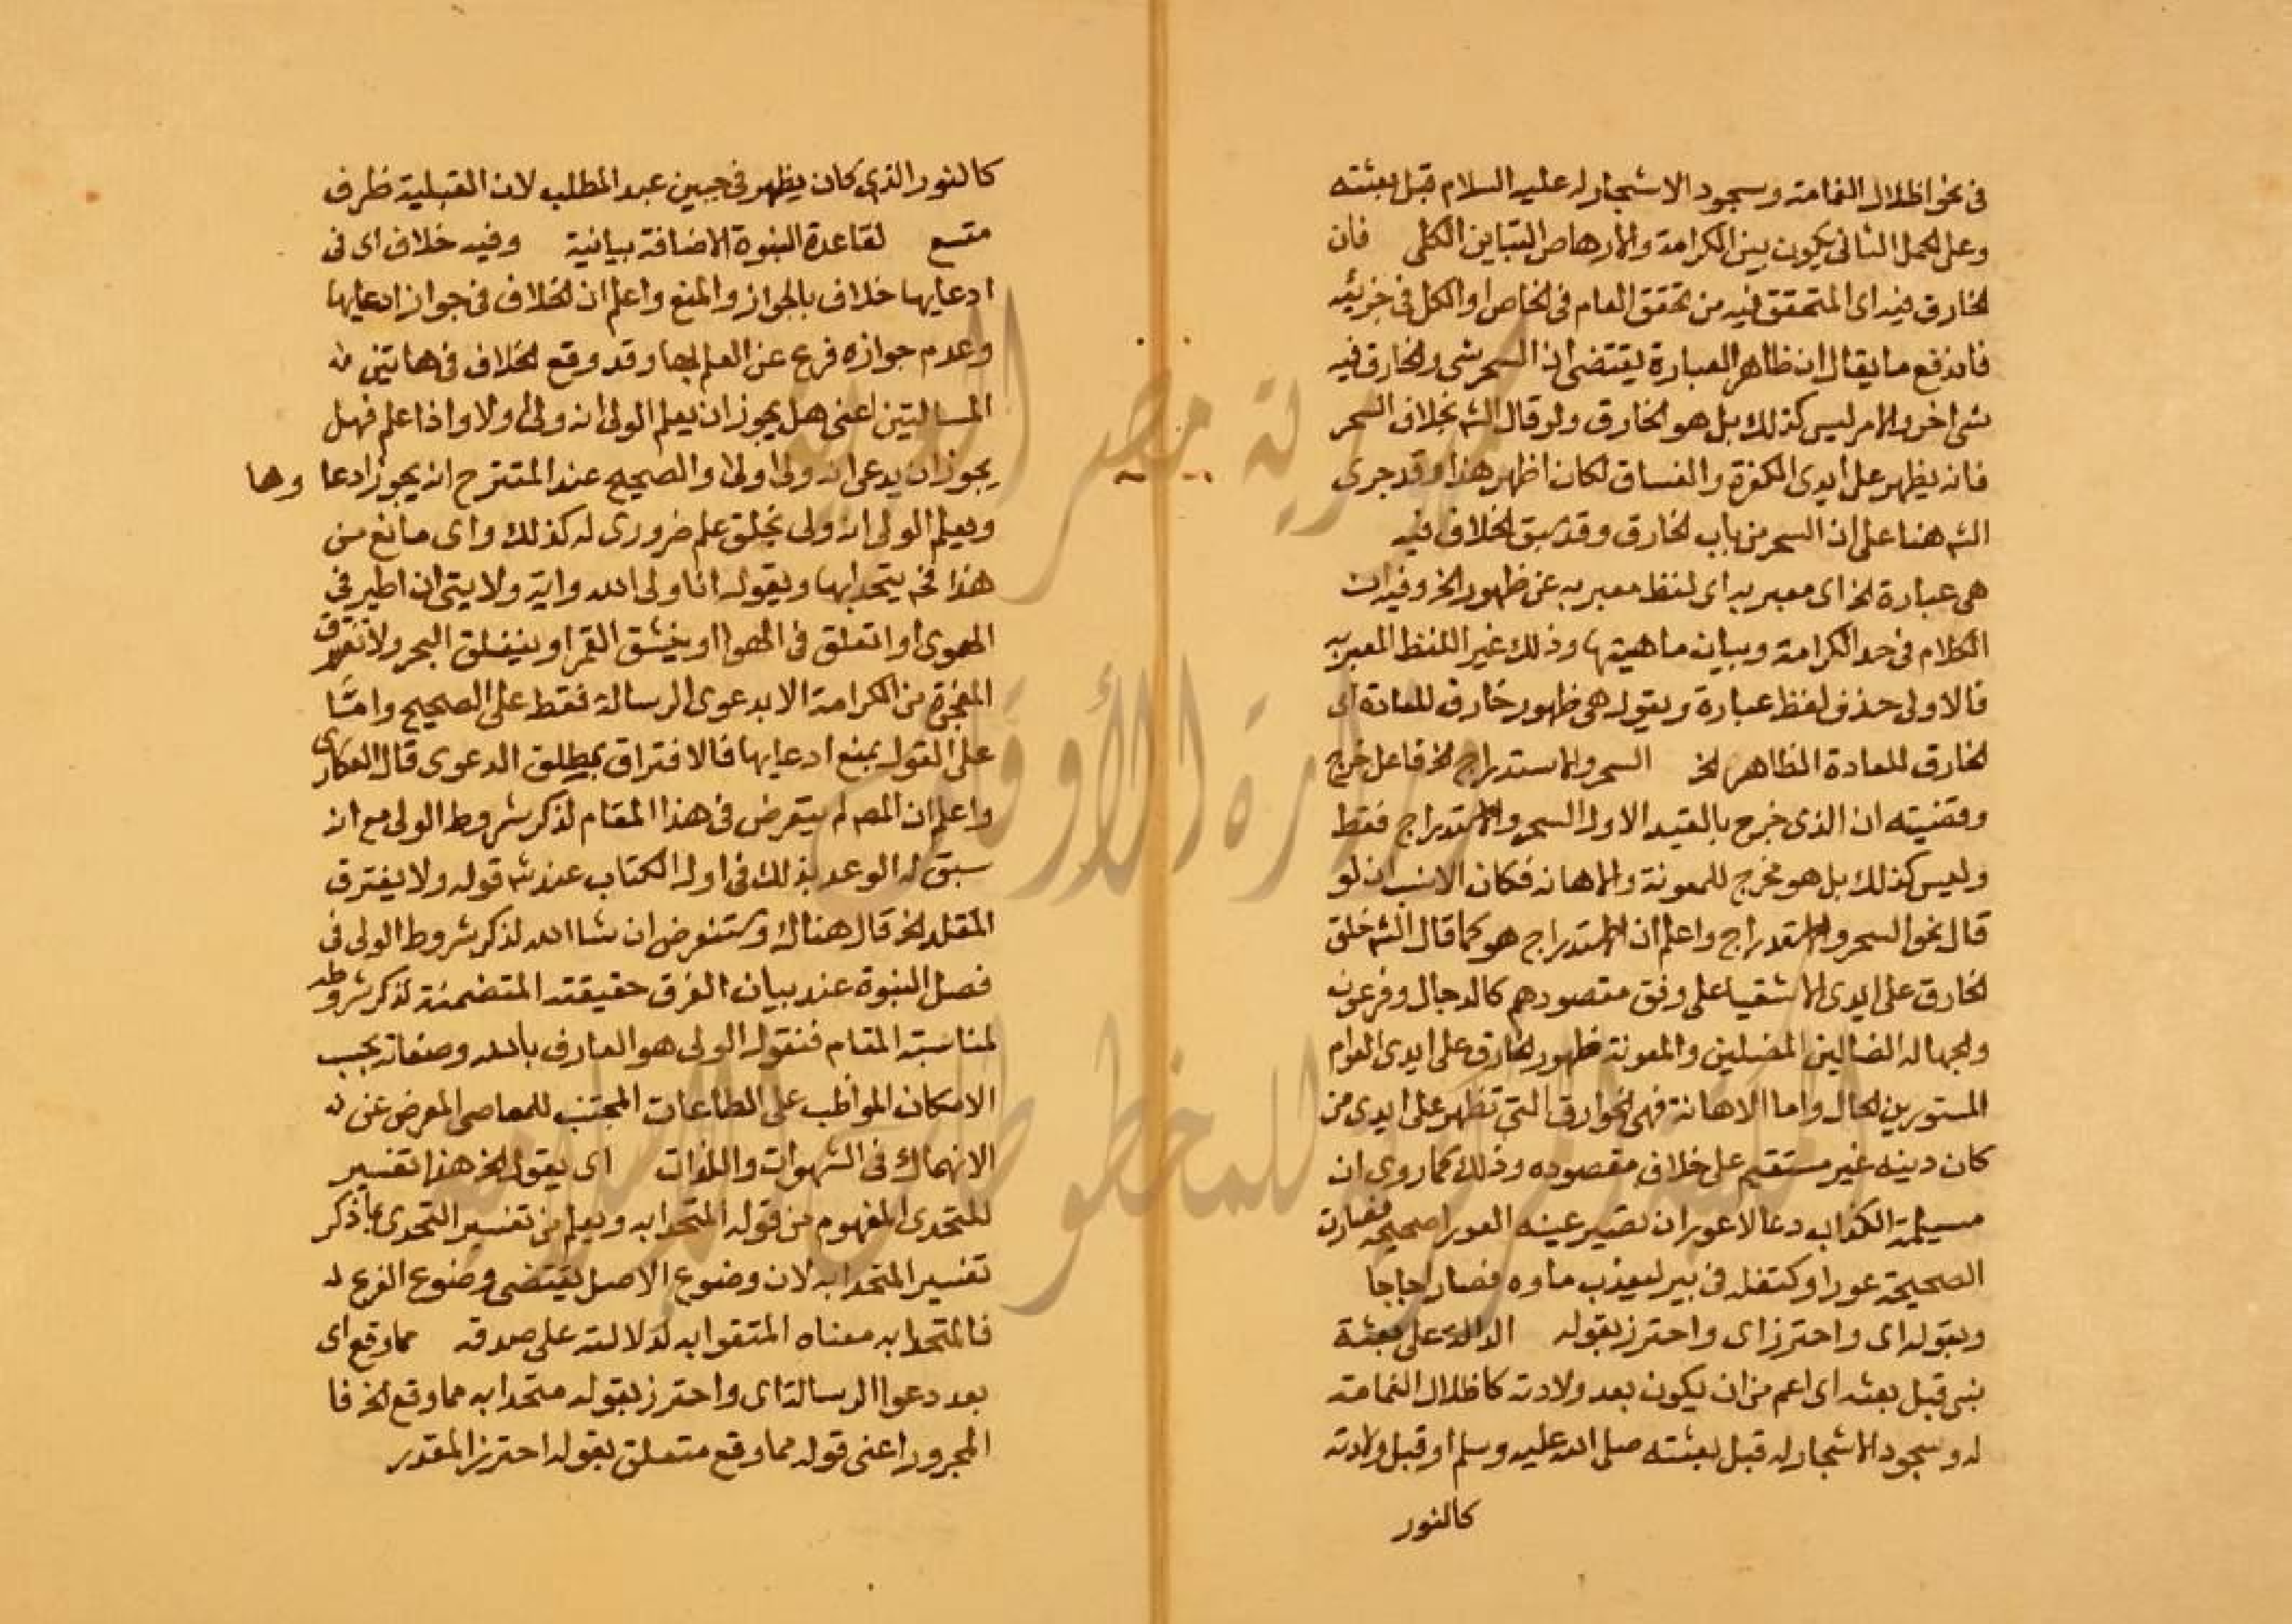 في نحو اظلال الغمامة وسجود الاشجار له عليه السلام قبل بعثته
وعلى الحمل الثاني يكون بين الكرامة والارهاص التباين الكلي فان
الخارق فيه اي المتحقق فيه من تحقق العام في الخاص او الكل في جزئيه
فاندفع ما يقال ان ظاهر العبارة يقتضي ان السحر شي والخارق فيه
شي اخر والامر ليس كذلك بل هو الخارق ولو قال الشه بخلاف السحر
فانه يظهر على ايدى الكفرة والفساق لكان اظهر هذا وقد جرى
الشه هنا على ان السحر من باب الخارق وقد سبق الخلاف فيه
هي عبارة الخ اي معبر به اي لفظ معبر به عن ظهور الخ وفيه ان
الكلام في حد الكرامة وبيان ماهيتها وذلك غير اللفظ المعبر به
فالاولى حذف لفظ عبارة ويقول هي ظهور خارق للعادة اي
الخارق للعادة الظاهر الخ السحر والاستدراج الخ فاعل خرج
وقضيته ان الذي خرج بالقيد الاول السحر والاستدراج فقط
وليس كذلك بل هو مخرج للمعونة والاهانه فكان الانسب ان لو
قال نحو السحر والاستدراج واعلم ان الاستدراج هو كما قال الشه خلق
الخارق على ايدى الاشقيا على وفق مقصودهم كالدجال وفرعون
والجهاله الضالين المضلين والمعونة ظهور الخارق على ايدى العوام
المستورين الحال واما الاهانة فهي الخوارق التي تظهر على ايدى من
كان دينه غير مستقيم على خلاف مقصوده وذلك كما روي ان
مسيلمة الكذاب دعا لاعور ان تصير عينه العورا صحيحة فصارت
الصحيحة عورا وكتفله في بير ليعذب ماوه فصار اجاجا
وبقوله اي واحترز اي واحترز بقوله الدالة على بعثة
نبي قبل بعثه اي اعم من ان يكون بعد ولادته كاظلال الغمامة
له وسجود الاشجار له قبل بعثته صلى الله عليه وسلم او قبل ولادته
كالنور
كالنور الذي كان يظهر في جبين عبد المطلب لان القبلية ظرف
متسع لقاعدة النبوة الاضافة بيانية وفيه خلاف اي في
ادعايها خلاف بالجواز والمنع واعلم ان الخلاف في جواز ادعايها
وعدم جوازه فرع عن العلم بها وقد وقع الخلاف في هاتين
المسالتين اعني هل يجوز ان يعلم الولي انه ولي او لا واذا علم فهل
يجوز ان يدعي انه ولي او لا والصحيح عند المقترح انه يجوز ادعا وها
ويعلم الولي انه ولي بخلق علم ضروري له كذلك واي مانع من
هذا فحـ يتحدا بها ويقول انا ولي الله وايتـ ولايتي ان اطير في
الهوى او اتعلق في الهوا او ينشق القمر او ينفلق البحر ولا تفترق
المعجزة من الكرامة الا بدعوى الرسالة فقط على الصحيح وامّا
على القول بمنع ادعايها فالافتراق بمطلق الدعوى قال العكاري
واعلم ان المصـ لم يتعرض في هذا المقام لذكر شروط الولي مع انه
سبق له الوعد بذلك في اول الكتاب عند شـ قوله ولا يفترق
المقلد الخ قال هناك وستنعرض ان شا الله لذكر شروط الولي في
فصل النبوة عند بيان الفرق حقيقته المتضمنة لذكر شروطه
لمناسبة المقام فنقول الولي هو العارف بالله وصفاته بحسب
الامكان المواظب على الطاعات المجتنب للمعاصي المعرض عن
الانهماك في الشهوات واللذات اي يقول الخ هذا تفسير
للمتحدى المفهوم من قوله المتحدا به ويعلم من تفسير التحدى بما ذكر
تفسير المتحدا به لان وضوع الاصل يقتضي وضوع الفرع
فالمتحدا به معناه المتقوا به لدلالته على صدقه مما وقع اي
بعد دعوا الرسالة اي واحترز بقوله متحدا به مما وقع الخ فا
المجرور اعني قوله مما وقع متعلق بقوله احترز المقدر